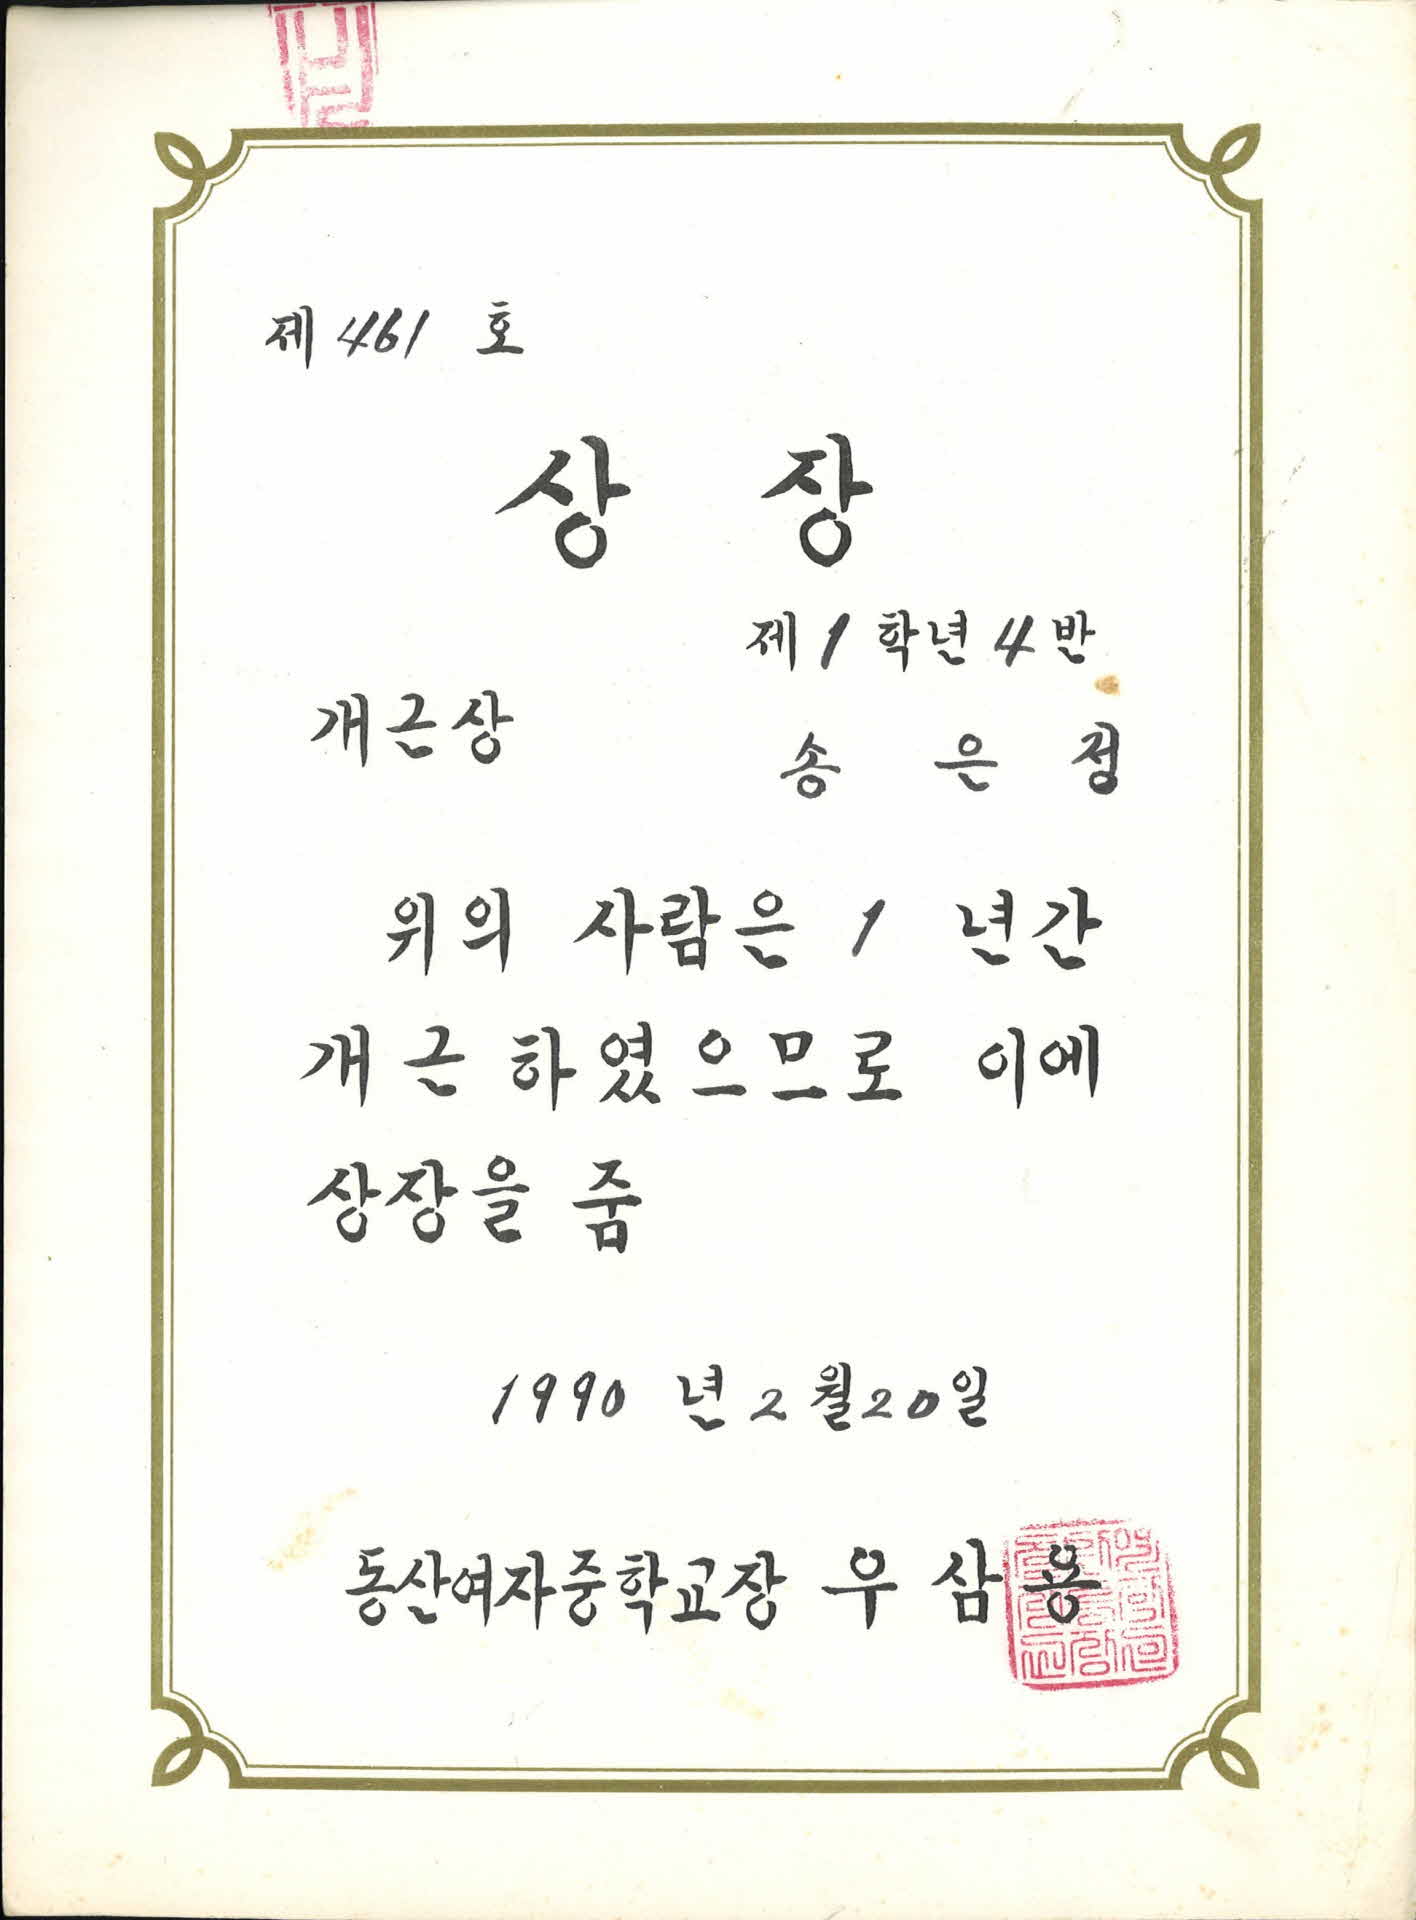 제 461 호
상 장
제 1 학년 4 반
개근상
송 은 정
위의 사람은 1 년간
개근 하였으므로 이에
상장을 줌
1990 년 2 월 20 일
동산여자중학교장 우 삼 용